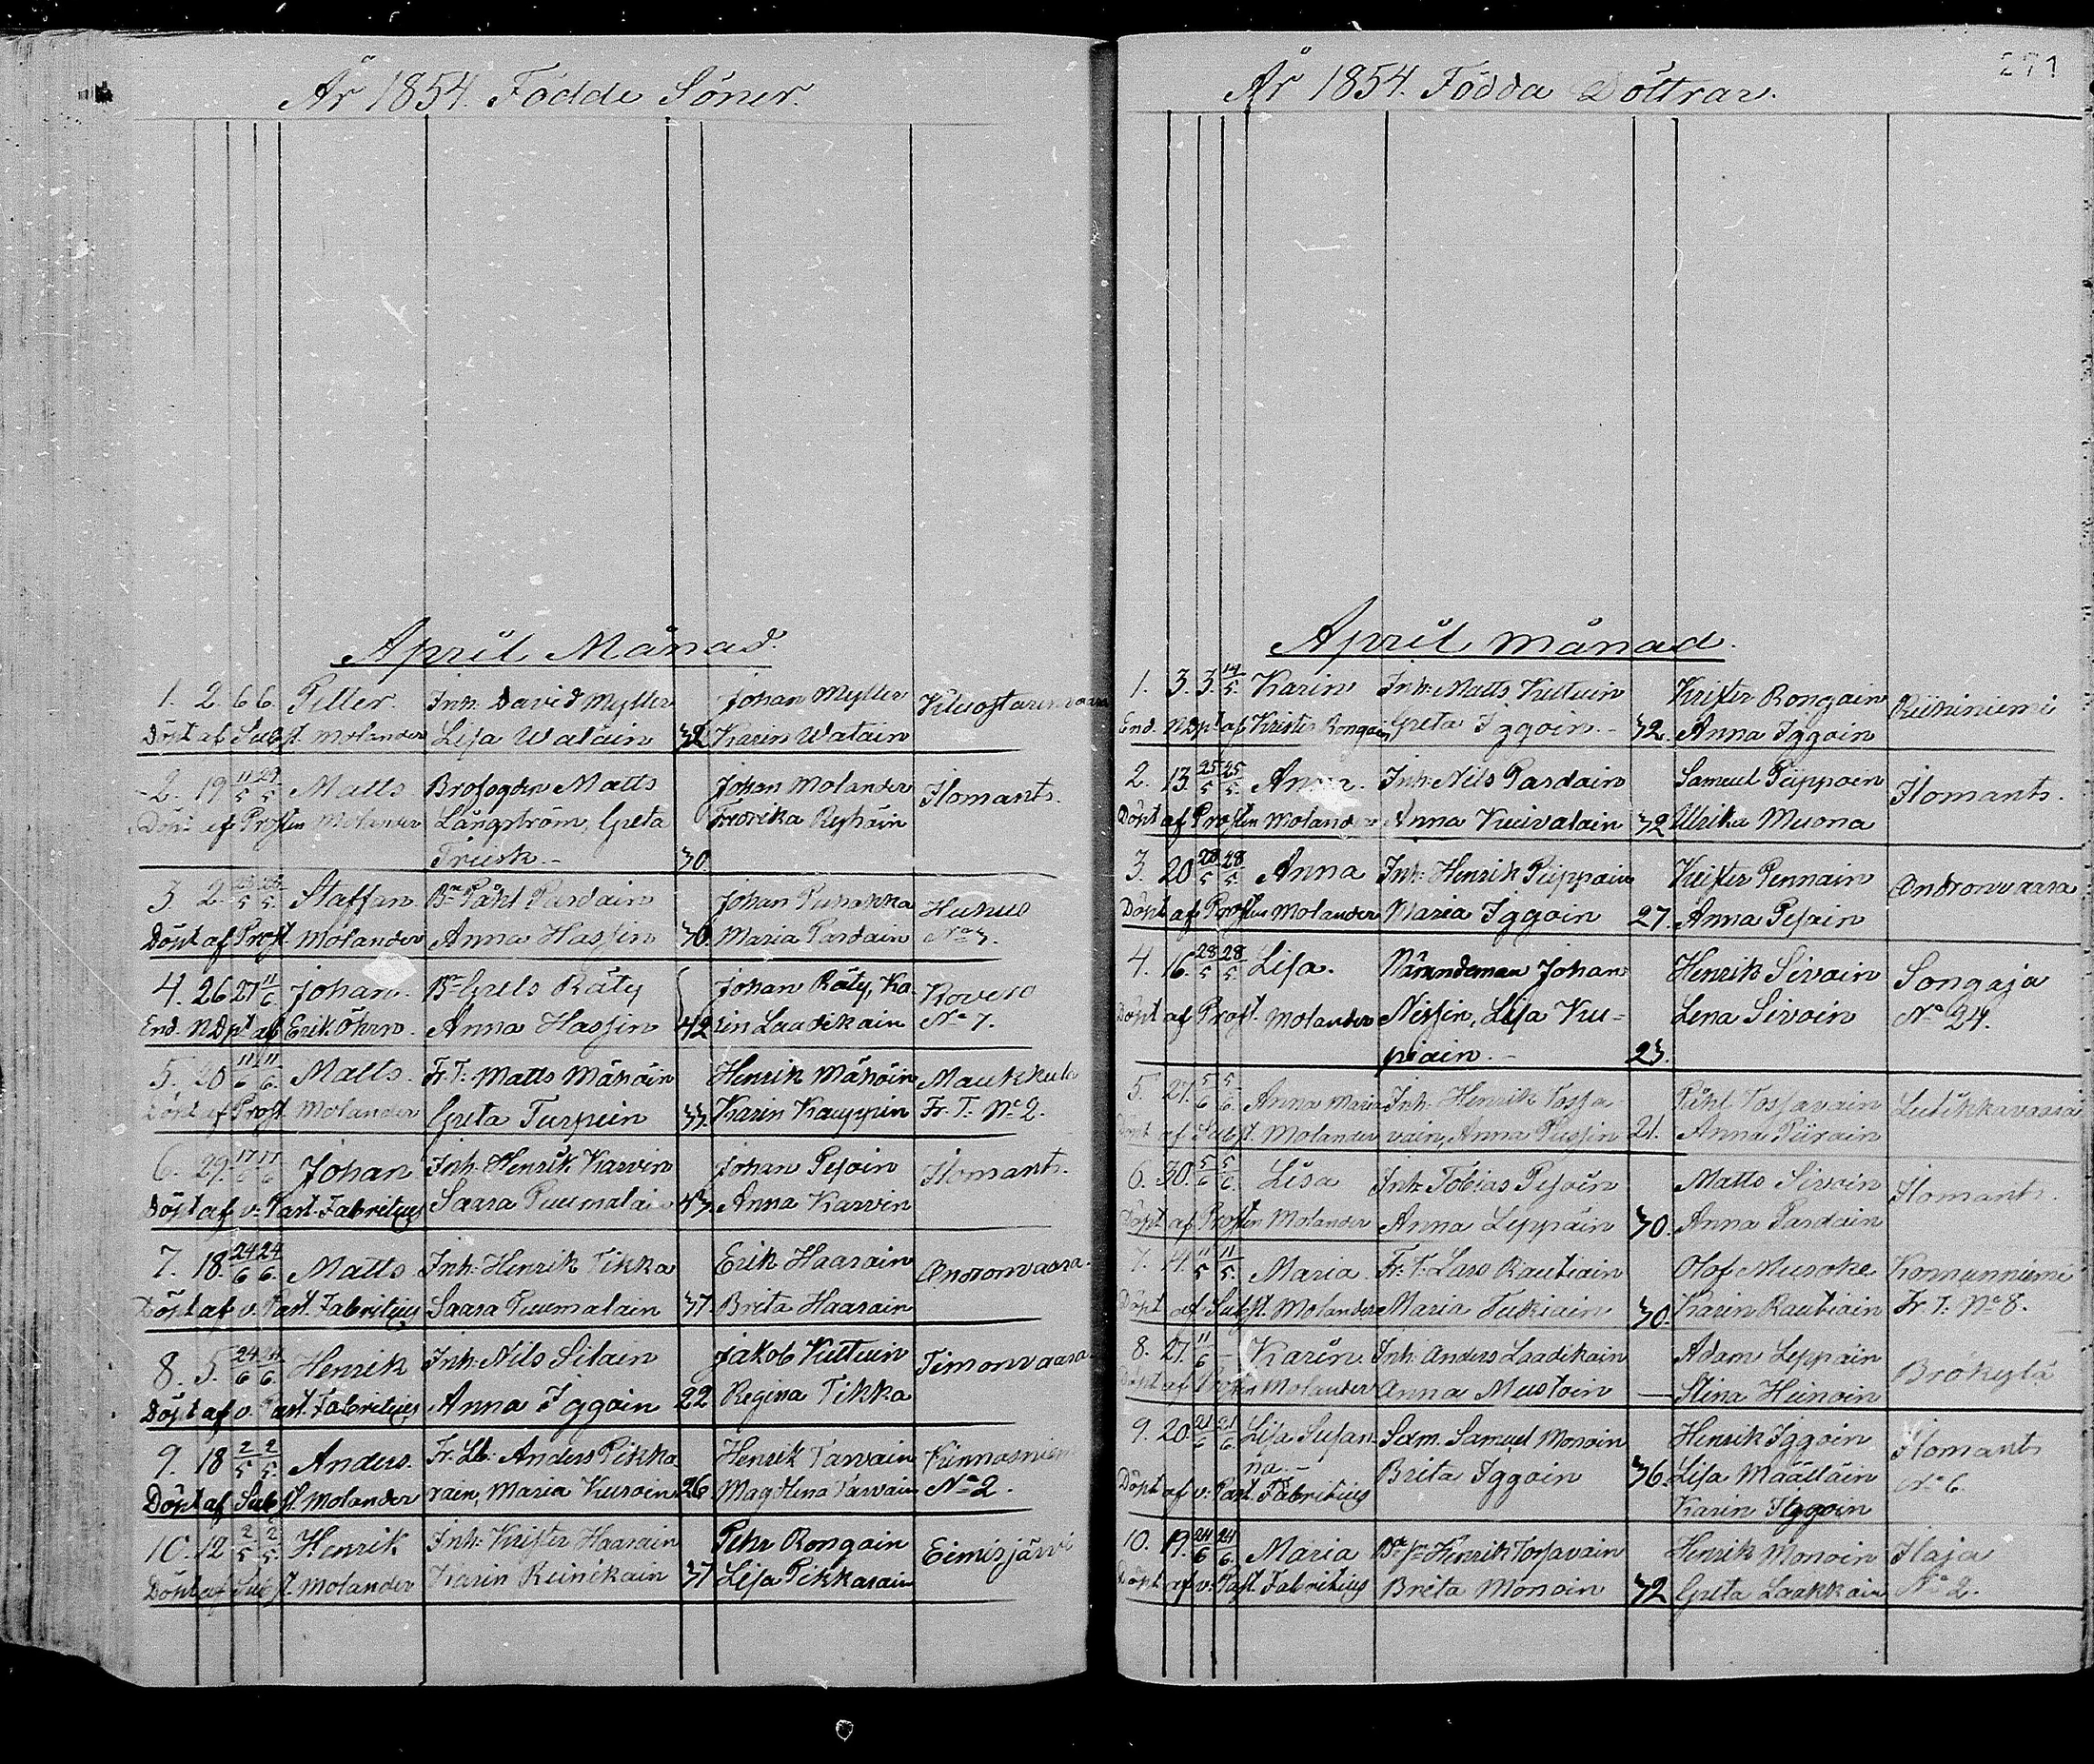 År 1854. Födde Söner.
April Månad.
1. 2. 6 6. Petter. Inh: David Myller Johan Myller
Döpt af Subst. Molander Lisa Walain 32 Karin Watain
2. 19 11/5 29/5 Matts Brofogden Matts Johan Molander Ilomants.
Döpt af Prosten Molander Långström, Greta Fredrika Ryhäin
Trusk.- 30.
3 2. 28/5 28/5. Staffan Bn Påhl Pardain Johan Puhakka Huhus
Döpt af Prost. Molander Anna Hassin 30. Maria Pardain No 3.
4. 26 27 11/6. Johan. Bn Grels Räty Johan Räty, Ka- Kovero
End. NDpt af Erik Öhrn. Anna Hassin 42 rin Laadikain No 7.
5. 20 11/6 11/6. Matts. Fr. T. Matts Mähöin Henrik Mähöin Maukkula
Döpt af Prost. Molander Greta Turpein 33. Karin Kauppin Fr. T. No 2.
6. 29. 17/6 17/6 Johan Inh: Henrik Karvin Johan Pesoin Ilomants.
Döpt af v: Past. Fabritius Saara Puumalai 43 Anna Karvin
7. 18. 24/6 24/6. Matts Inh: Henrik Tikka Erik Haarain Andronvaara.
Döpt af v. Past. Fabritius Saara Puumalain 37 Brita Haarain
8. 5. 24/6 Henrik Inh: Nils Silain Jakob Kutuin Timonvaara
Döpt af v. Past. Fabritius Anna Iggoin 22 Regina Tikka
9. 18 2/5 2/5. Anders. Fr. Lb: Anders Pikka Henrik Tarvain Kinnasniem
Döpt af Subst. Molander rain, Maria Kuroin 26 Magdlena Tarvain No 2.
10. 12 2/5 2/5. Henrik Inh: Krister Haarain Pehr Rongain Eimisjärvi
Döpt af Subst. Molander Karin Reinikain 37 Lisa Pikkarain
271
År 1854. Födda Döttrar.
April månad.
1. 3. 3. 14/5. Karin Inh: Matts Kutuin Krister Rongain
End. NDpt af Krister Rongain Greta Iggoin.- 32. Anna Iggoin
2. 13. 25/5 25/5. Anna. Inh: Nils Pardain Samuel Piippoin Ilomants.
Döpt af Prosten Molander Anna Kuivalain 32 Ulrika Muona
3. 20 28/5 28/5. Anna Inh: Henrik Piippoin Krister Pennain Andronvaara
Döpt af Prosten Molander Maria Iggoin 27. Anna Pesoin
4. 16. 28/5 28/5. Lisa. Nämndeman Johan Henrik Sivoin Songaja
Döpt af Prost. Molander Nissin, Lisa Kui- Lena Sivoin No 24.
piain.- 23.
5. 27. 5/6 5/6. Anna Maria Inh: Henrik Tossa- Påhl Tossavain Lutikkavaara
Döpt af Subst. Molander vain, Anna Pussin 21. Anna Piirain
6. 30. 5/6 5/6. Lisa Inh: Tobias Pesoin Matts Sivoin Ilomants.
Döpt af Prosten Molander Anna Leppäin 30. Anna Pardain
7. 4. 11/5 11/5. Maria. Fr. T. Lars Rautiain Olof Muroke Konnunniemi
Döpt af Subst. Molander Maria Tukiain 30. Karin Rautiain Fr. T. No 8.
8. 27. 11/6 – Karin. Inh: Anders Laadikain Adam Leppäin
Döpt af Molander Anna Mustoin – Stina Heinoin
9. 20. 21/6 21/6. Lisa Susan- Sdm. Samuel Monoin Henrik Iggoin Ilomants
na.- Brita Iggoin 36. Lisa Määttäin No 6.
Döpt af v: Past. Fabritius Karin Iggoin
10. 19. 24/6 24/6. Maria Henrik Torsavain Henrik Monoin Ilaja
Döpt af v: Past. Fabritius Brita Monoin 32 Greta Laakkain No 2.